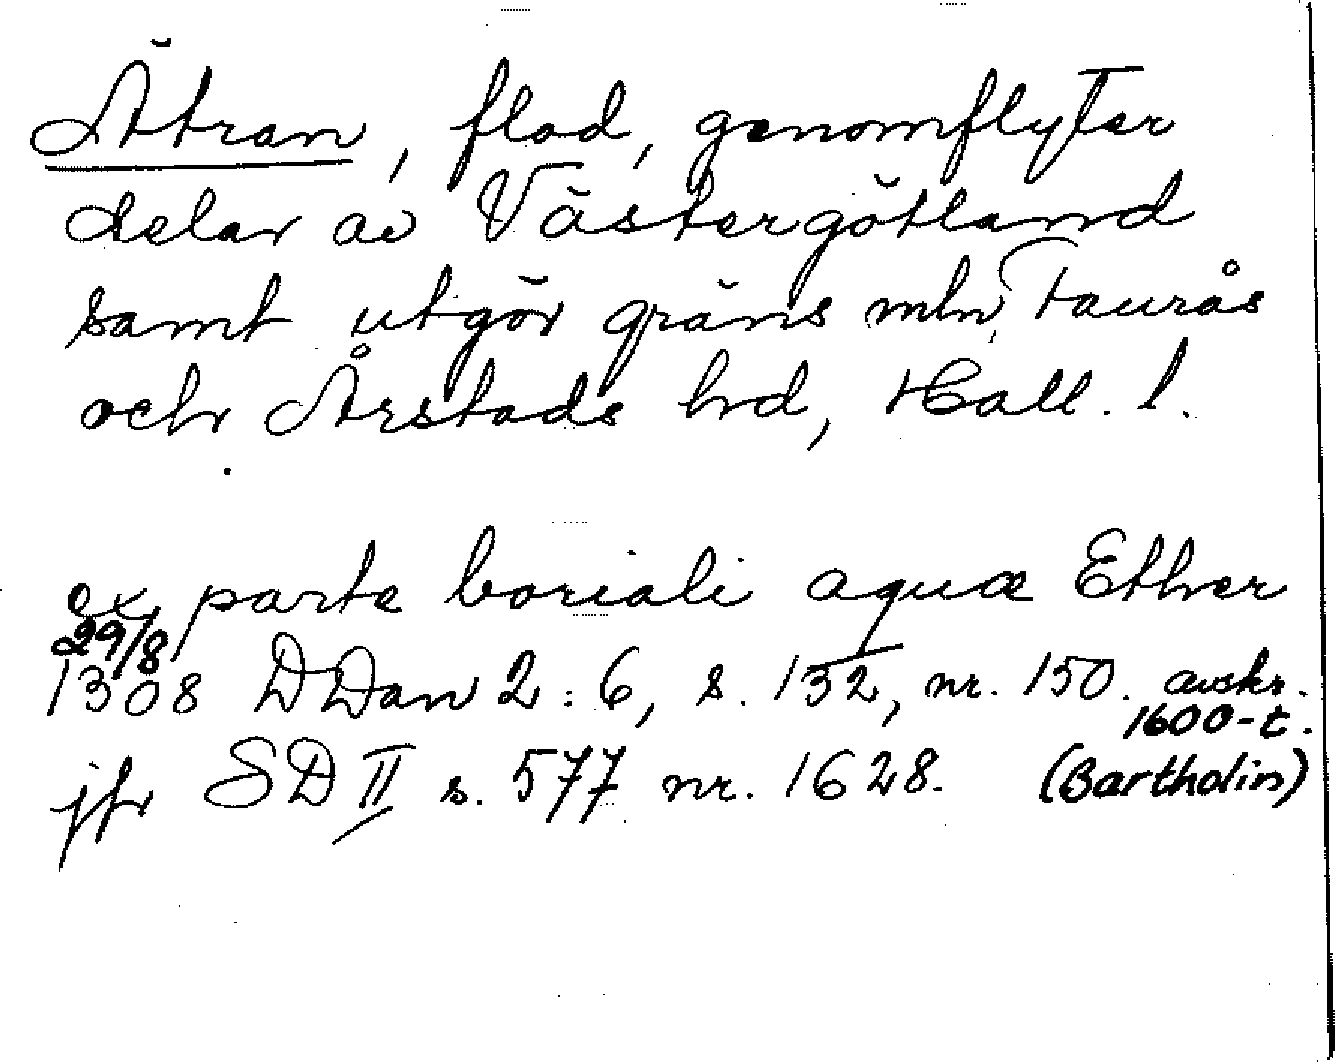 Ätran, flod, genomflyter
delar av Västergötland
samt utgör gräns mln Faurås
och Årstads hd, Hall. l.
ex parte boriali aquæ Ether
29/8
1308 DDan 2:6, s. 132, nr. 150. avskr.
1600-t.
jfr SD II s. 577 nr. 1628. (Bartholin)